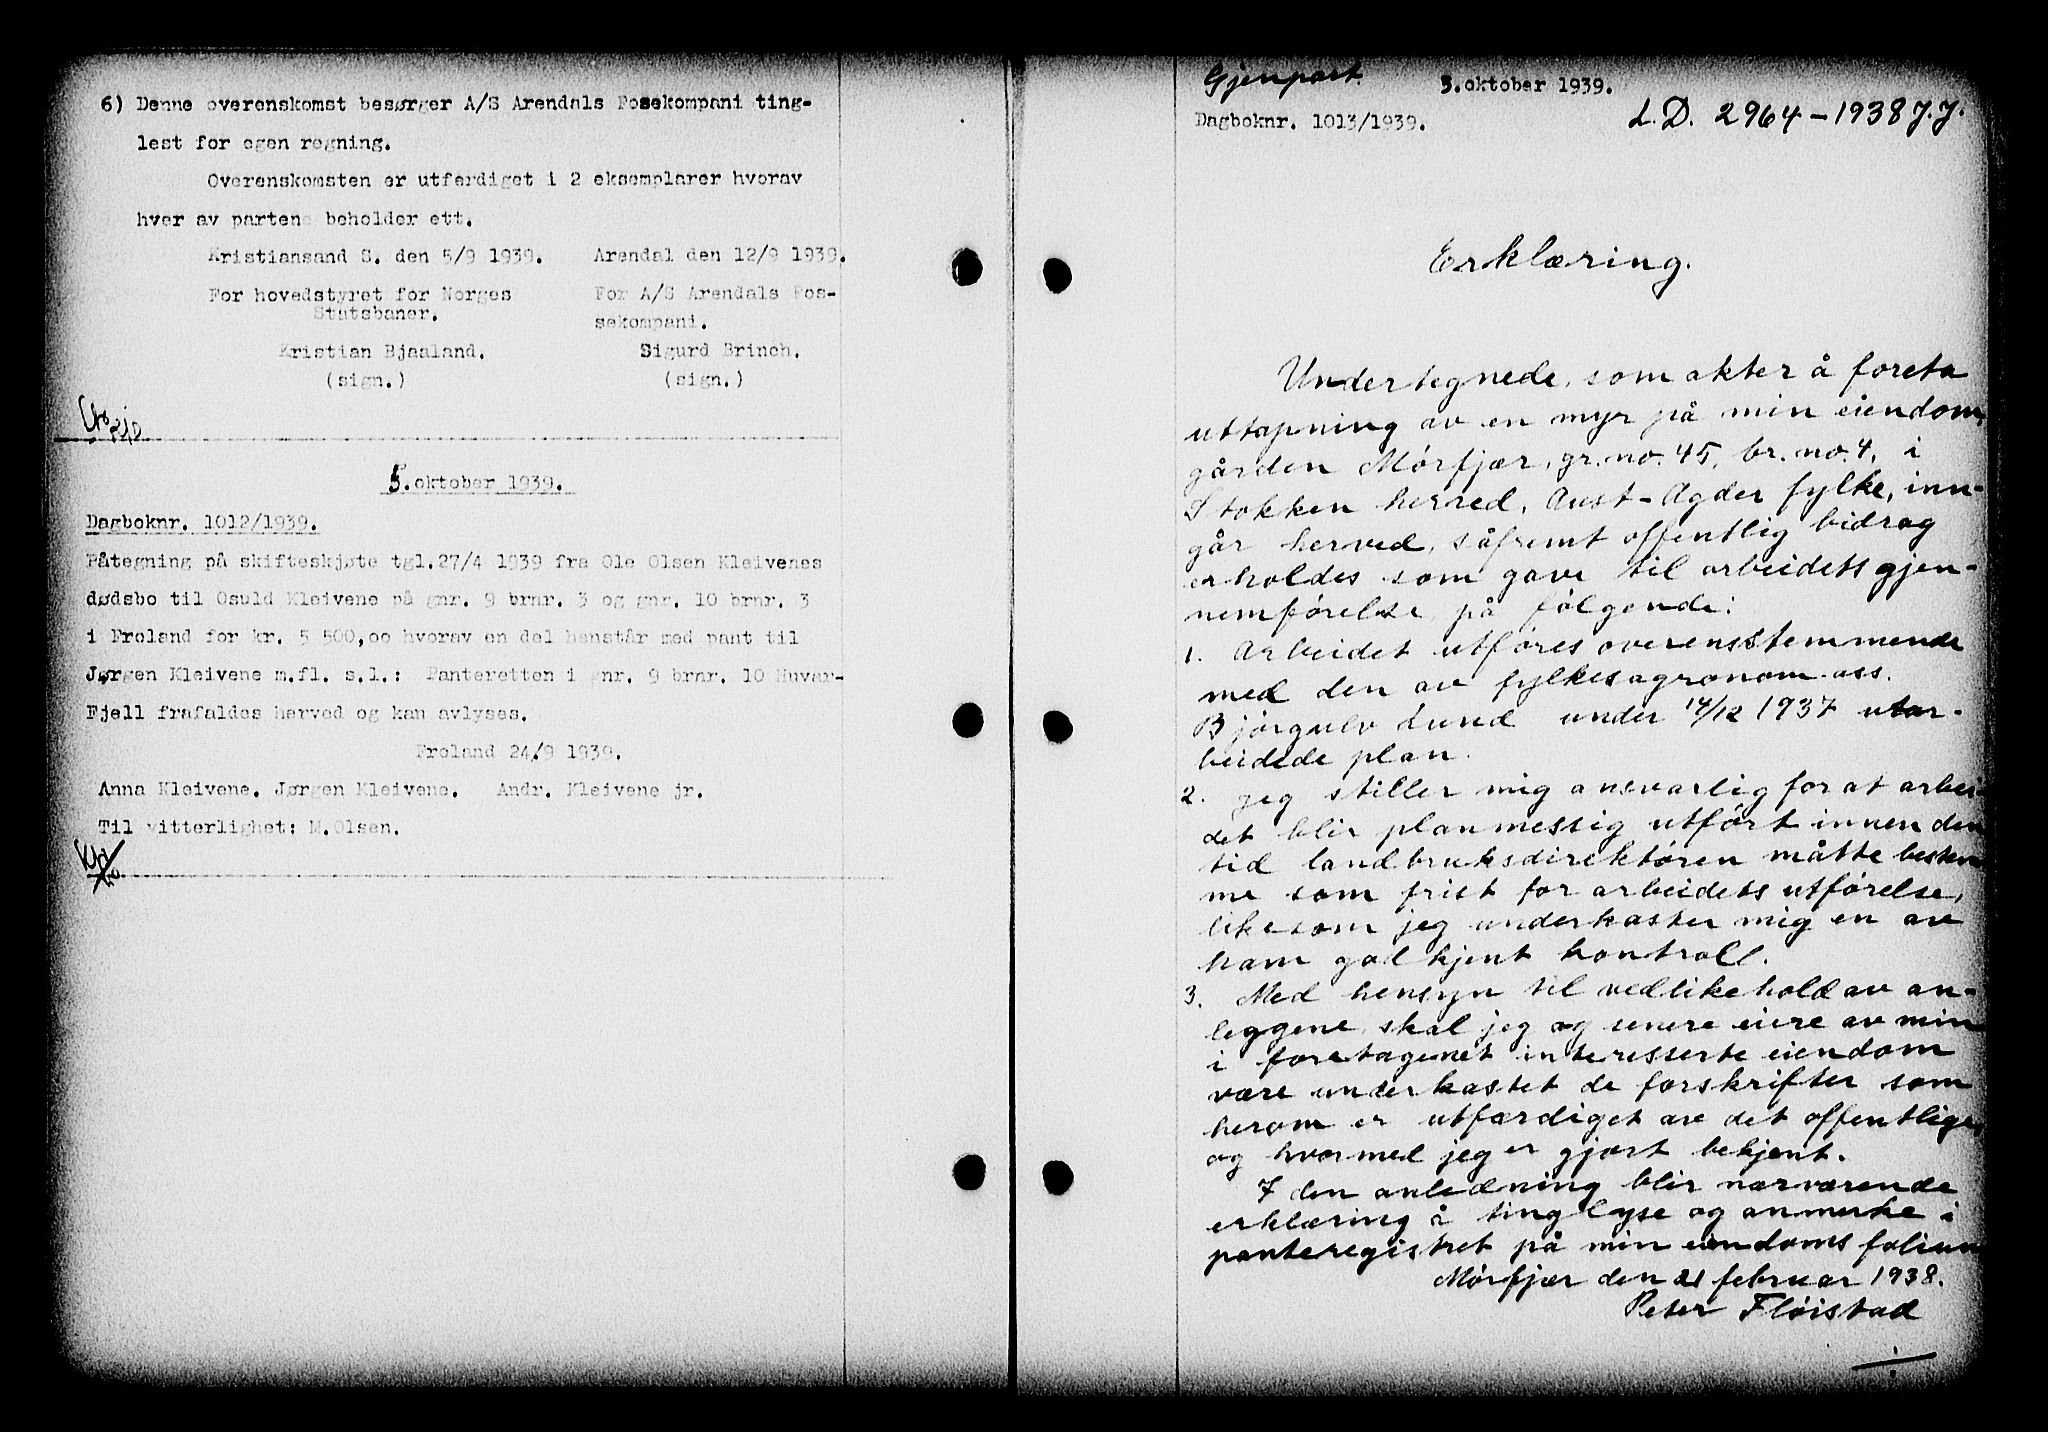 6) Denne overenskomst besørger A/S Arendals Fossekompani ting-
lest for egen regning.
Overenskomsten er utferdiget i 2 eksemplarer hvorav
hver av partene beholder ett.
Kristiansand S. den 5/9 1939. Arendal den 12/9 1939.
For hovedstyret for Norges For A/S Arendals Fos-
Statsbaner. sekompani.
Kristian Bjaaland. Sigurd Brinch.
(sign.) (sign.)
5. oktober 1939.
Dagboknr. 1012/1939.
Påtegning på skifteskjøte tgl. 27/4 1939 fra Ole Olsen Kleivenes
dødsbo til Osuld Kleivene på gnr. 9 brnr. 3 og gnr. 10 brnr. 3
i Froland for kr. 5 500,oo hvorav en del henstår med pant til
Jørgen Kleivene m.fl. s.l.: Panteretten i gnr. 9 brnr. 10 Huvar-
Fjell frafaldes herved og kan avlyses.
Froland 24/9 1939.
Anna Kleivene. Jørgen Kleivene. Andr. Kleivene jr.
Til vitterlighet: M.Olsen.
Gjenpart. 5. oktober 1939.
Dagboknr. 1013/1939.
L.D. 2964-1938 J.J.
Erklæring.
Undertegnede, som akter å foreta
uttapning av en myr på min eiendom,
gården Mørfjær, gr.no. 45, br.no. 4, i
Stokken herred, Aust-Agder fylke, inn-
går herved, såfremt offentlig bidrag
erholdes som gave til arbeidets gjen-
nemførelse, på følgende:
1. Arbeidet utføres overensstemmende
med den av fylkesagronom ass.
Bjørgulv Lund under 14/12 1937 utar-
beidede plan.
2. Jeg stiller mig ansvarlig for at arbei-
det blir planmessig utført innen den
tid landbruksdirektøren måtte bestem
me som frist for arbeidets utførelse,
likesom jeg underkaster mig en av
ham godkjent kontroll.
3. Med hensyn til vedlikehold av an-
leggene, skal jeg og senere eiere av min
i foretagenet interesserte eiendom
være underkastet de forskrifter som
herom er utfærdiget av det offentlige,
og hvormed jeg er gjort bekjent.
I den anledning blir nærværende
erklæring å tinglyse og anmerke i
panteregistret på min eiendoms folium
Mørfjær den 21 februar 1938.
Peter Fløistad